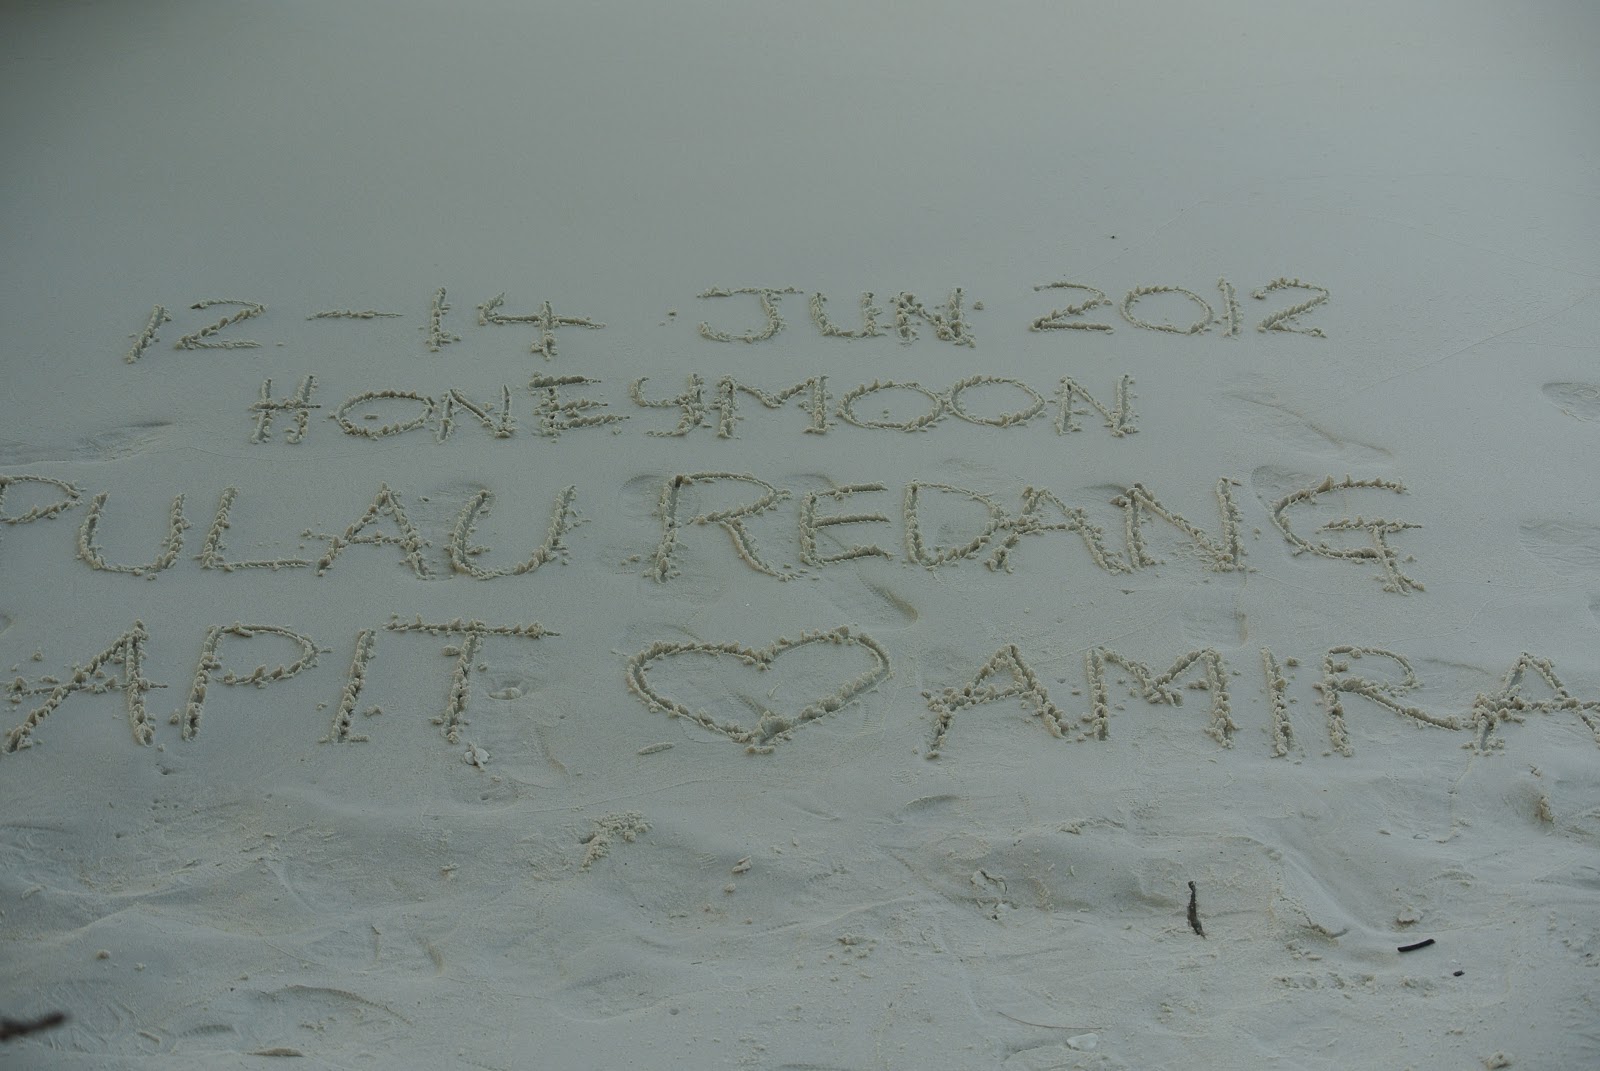 12-14 JUN 2012
HONEYMOON
PULAU REDANG
APIT ♡ AMIRA